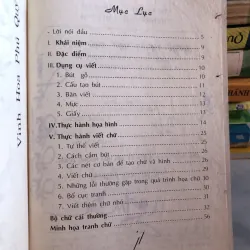 Mục Lục
- Lời nói đầu 5
I. Khái niệm
II. Đặc điểm
III. Dụng cụ viết
1. Bút gỗ
2. Cấu tạo bút
3. Bàn viết
4. Mực
5. Giấy
IV.Thực hành họa hình
V. Thực hành viết chữ 25
1. Tư thế viết 25
2. Cách cầm bút
3. Các nét cơ bản để tạo chữ và hình
4. Viết chữ
5. Những lỗi thường gặp trong quá trình họa chữ
6. Bố cục tranh
7. Viết thiệm chữ nhỏ
Bộ chữ cái thường
Minh họa tranh chữ 56
Vinh Hoa Phú Quý